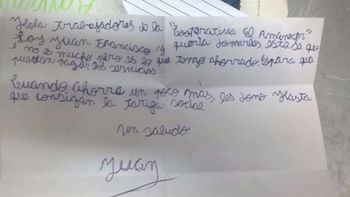 Hola trabajadores de la "Cooperativa El Amanecer"
Soy Juan Francisco y quería donarles este de que
no es mucho pero es lo que tengo ahorrado. Espara que
puedan pagar los servicios
Cuando ahorre un poco mas, les dono Hasta
que consigan la tarifa social
Un saludo
Juan